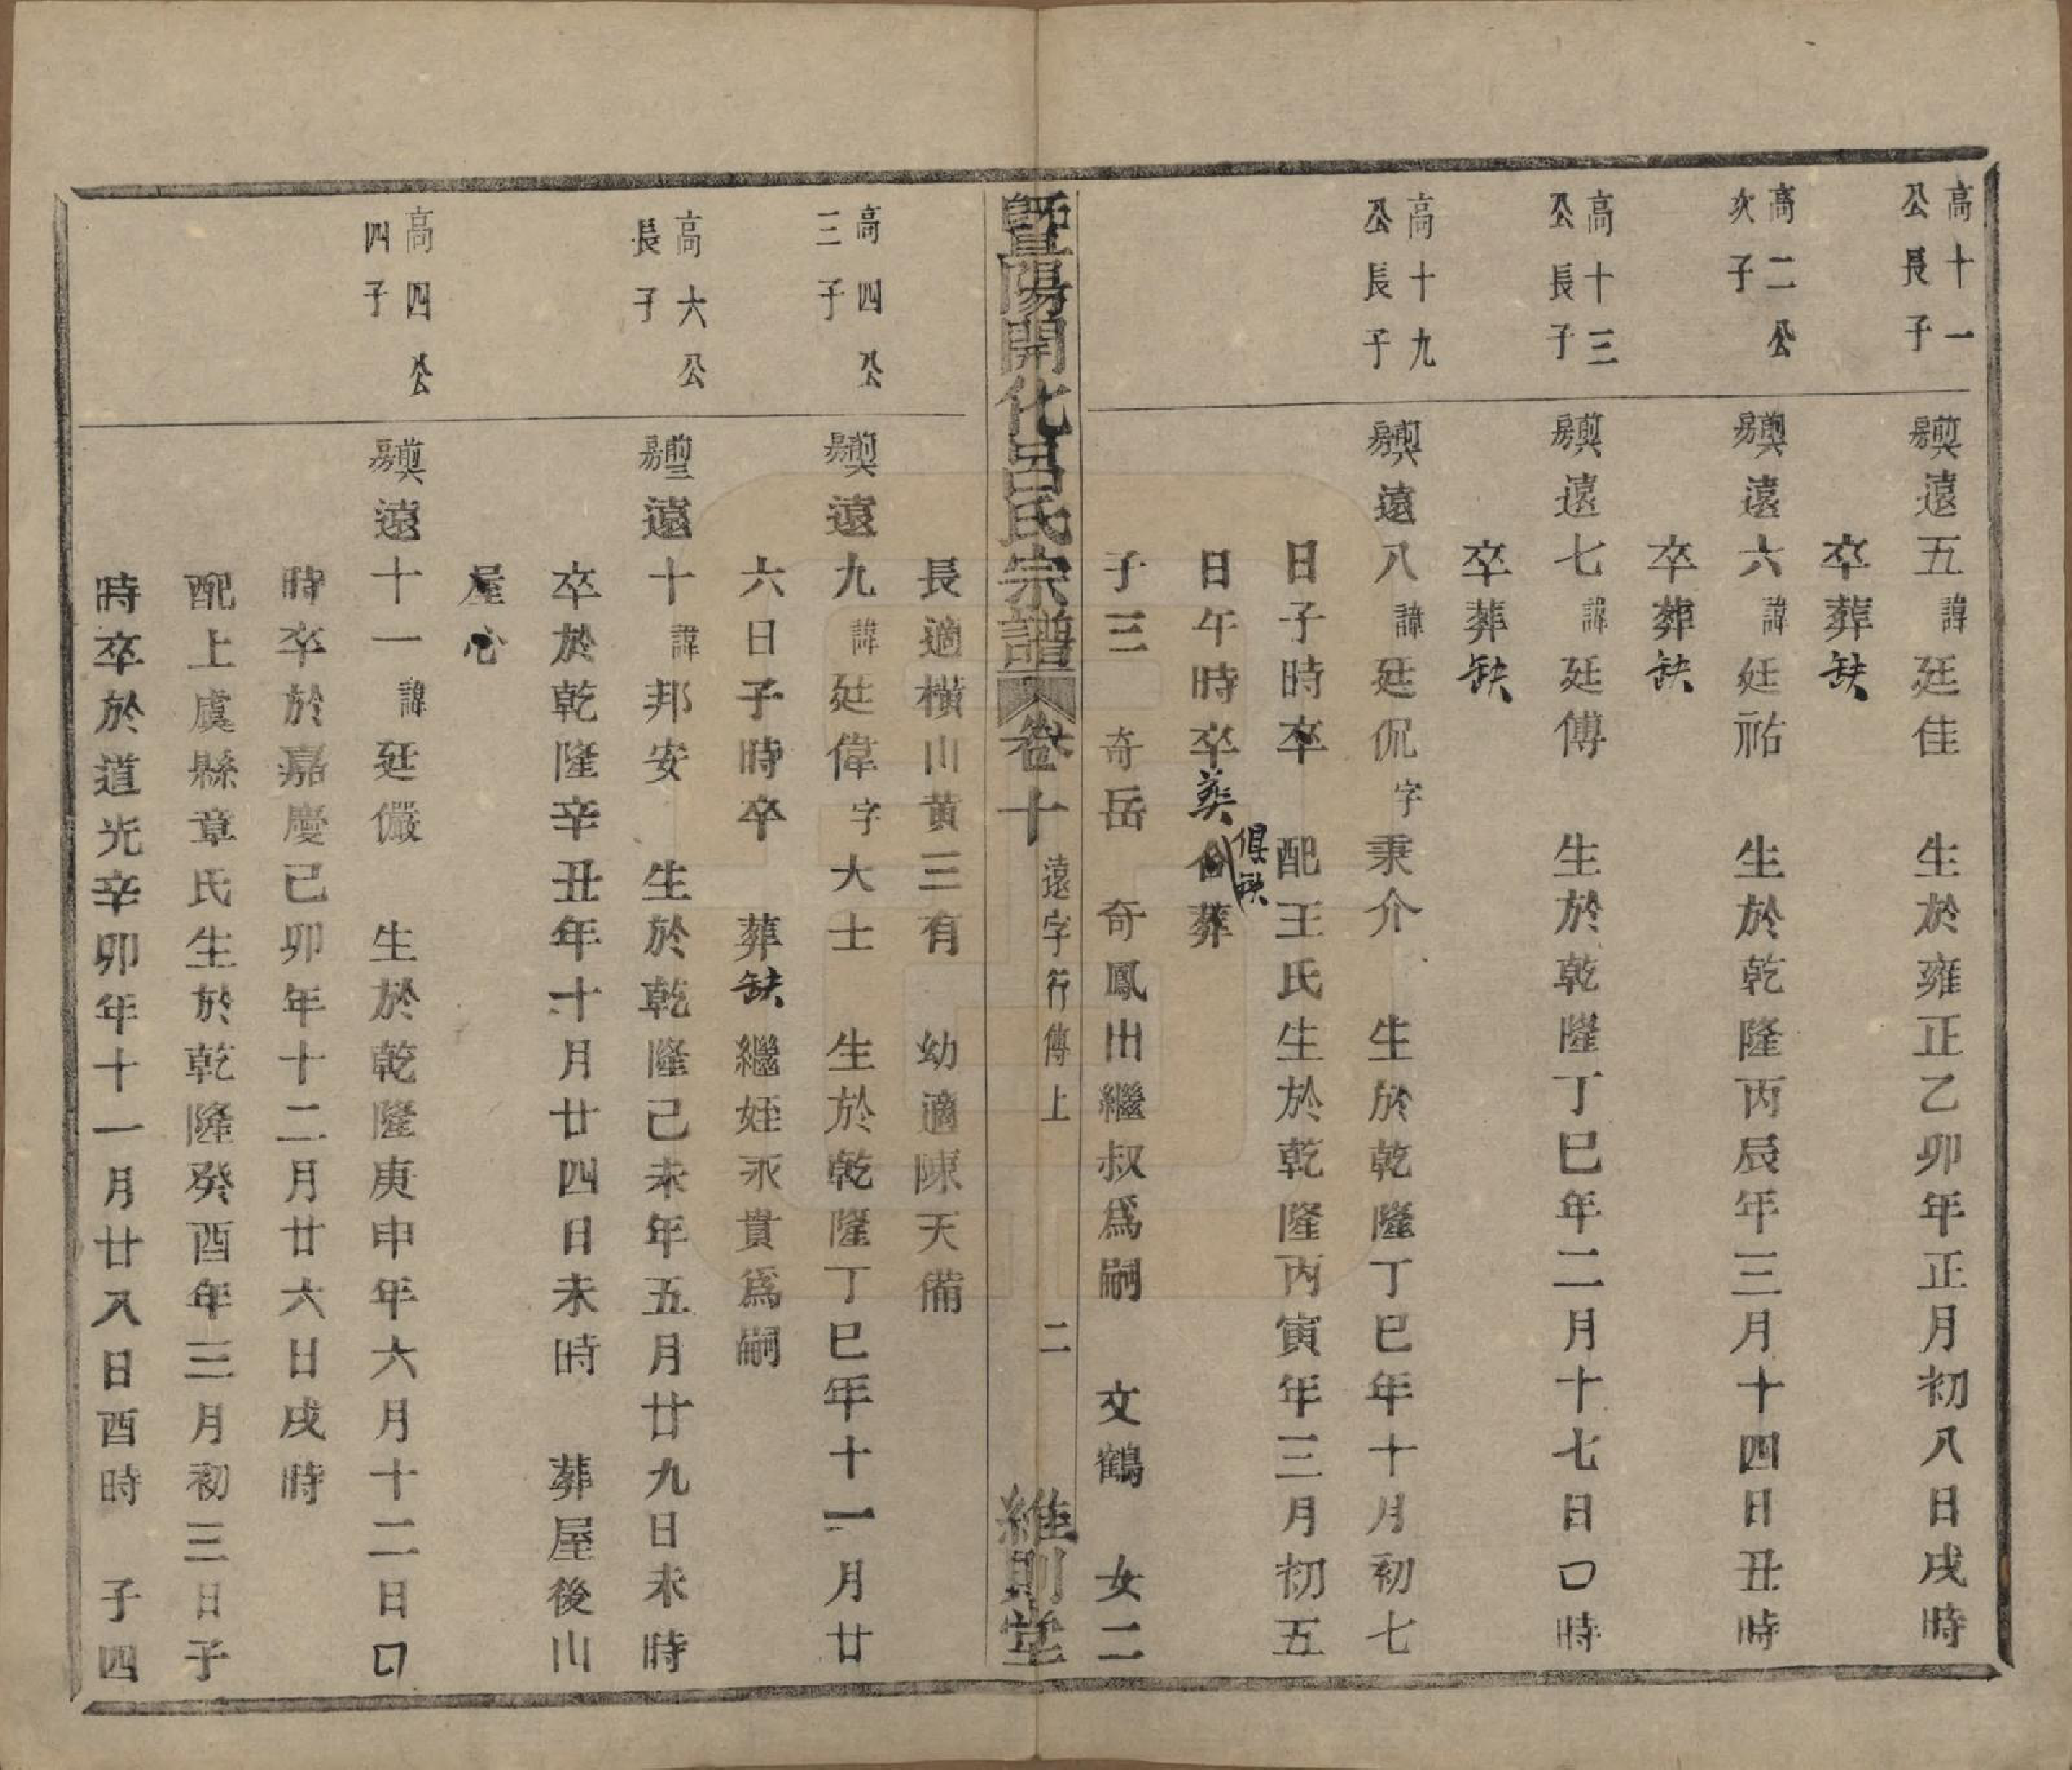 高十一公長子
巽房遠五諱廷佳　生於雍正乙卯年正月初八日戌時
卒葬缺
高二公次子
巽房遠六諱廷祐　生於乾隆丙辰年三月十四日丑時
卒葬缺
高十三公長子
巽房遠七諱廷傅　生於乾隆丁巳年二月十七日口時
卒葬缺
高十九公長子
巽房遠八諱廷侃字秉介　生於乾隆丁巳年十月初七
日子時卒　配王氏生於乾隆丙寅年三月初五
日午時卒葬俱缺合葬
子三　奇岳　奇鳳出繼叔爲嗣　文鶴　女二
暨陽開化呂氏宗譜　卷十　遠字行傳上　二　維則堂
長適橫山黄三有　幼適陳天備
高四公三子
巽房遠九諱廷偉字大士　生於乾隆丁巳年十一月廿
六日子時卒　葬缺繼姪永貴爲嗣
高六公長子
房遠十諱邦安　生於乾隆己未年五月廿九日未時
卒於乾隆辛丑年十月廿四日未時　葬屋後山
屋心
高四公四子
巽房遠十一諱廷儼　生於乾隆庚申年六月十二日口
時卒於嘉慶己卯年十二月廿六日戌時
配上虞縣章氏生於乾隆癸酉年三月初三日子
時卒於道光辛卯年十一月廿八日酉時　子四